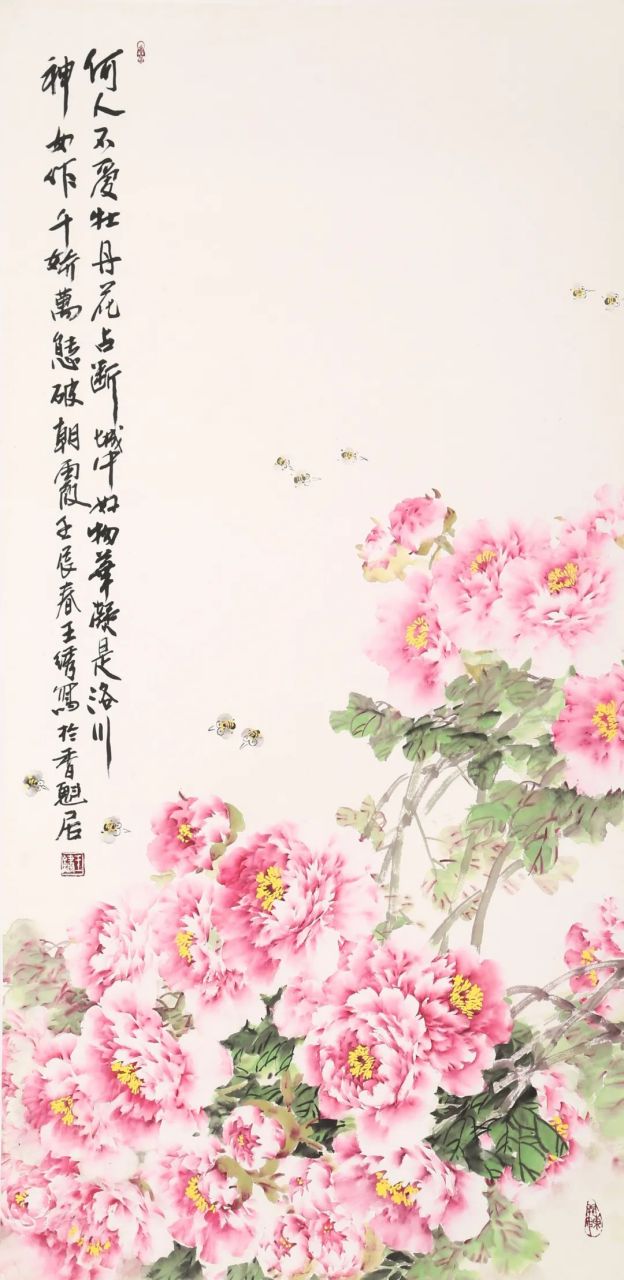 何人不爱牡丹花占断城中好物華凝是洛川
神女作千娇萬態破朝霞壬辰春王绣寫於香魁居
王绣